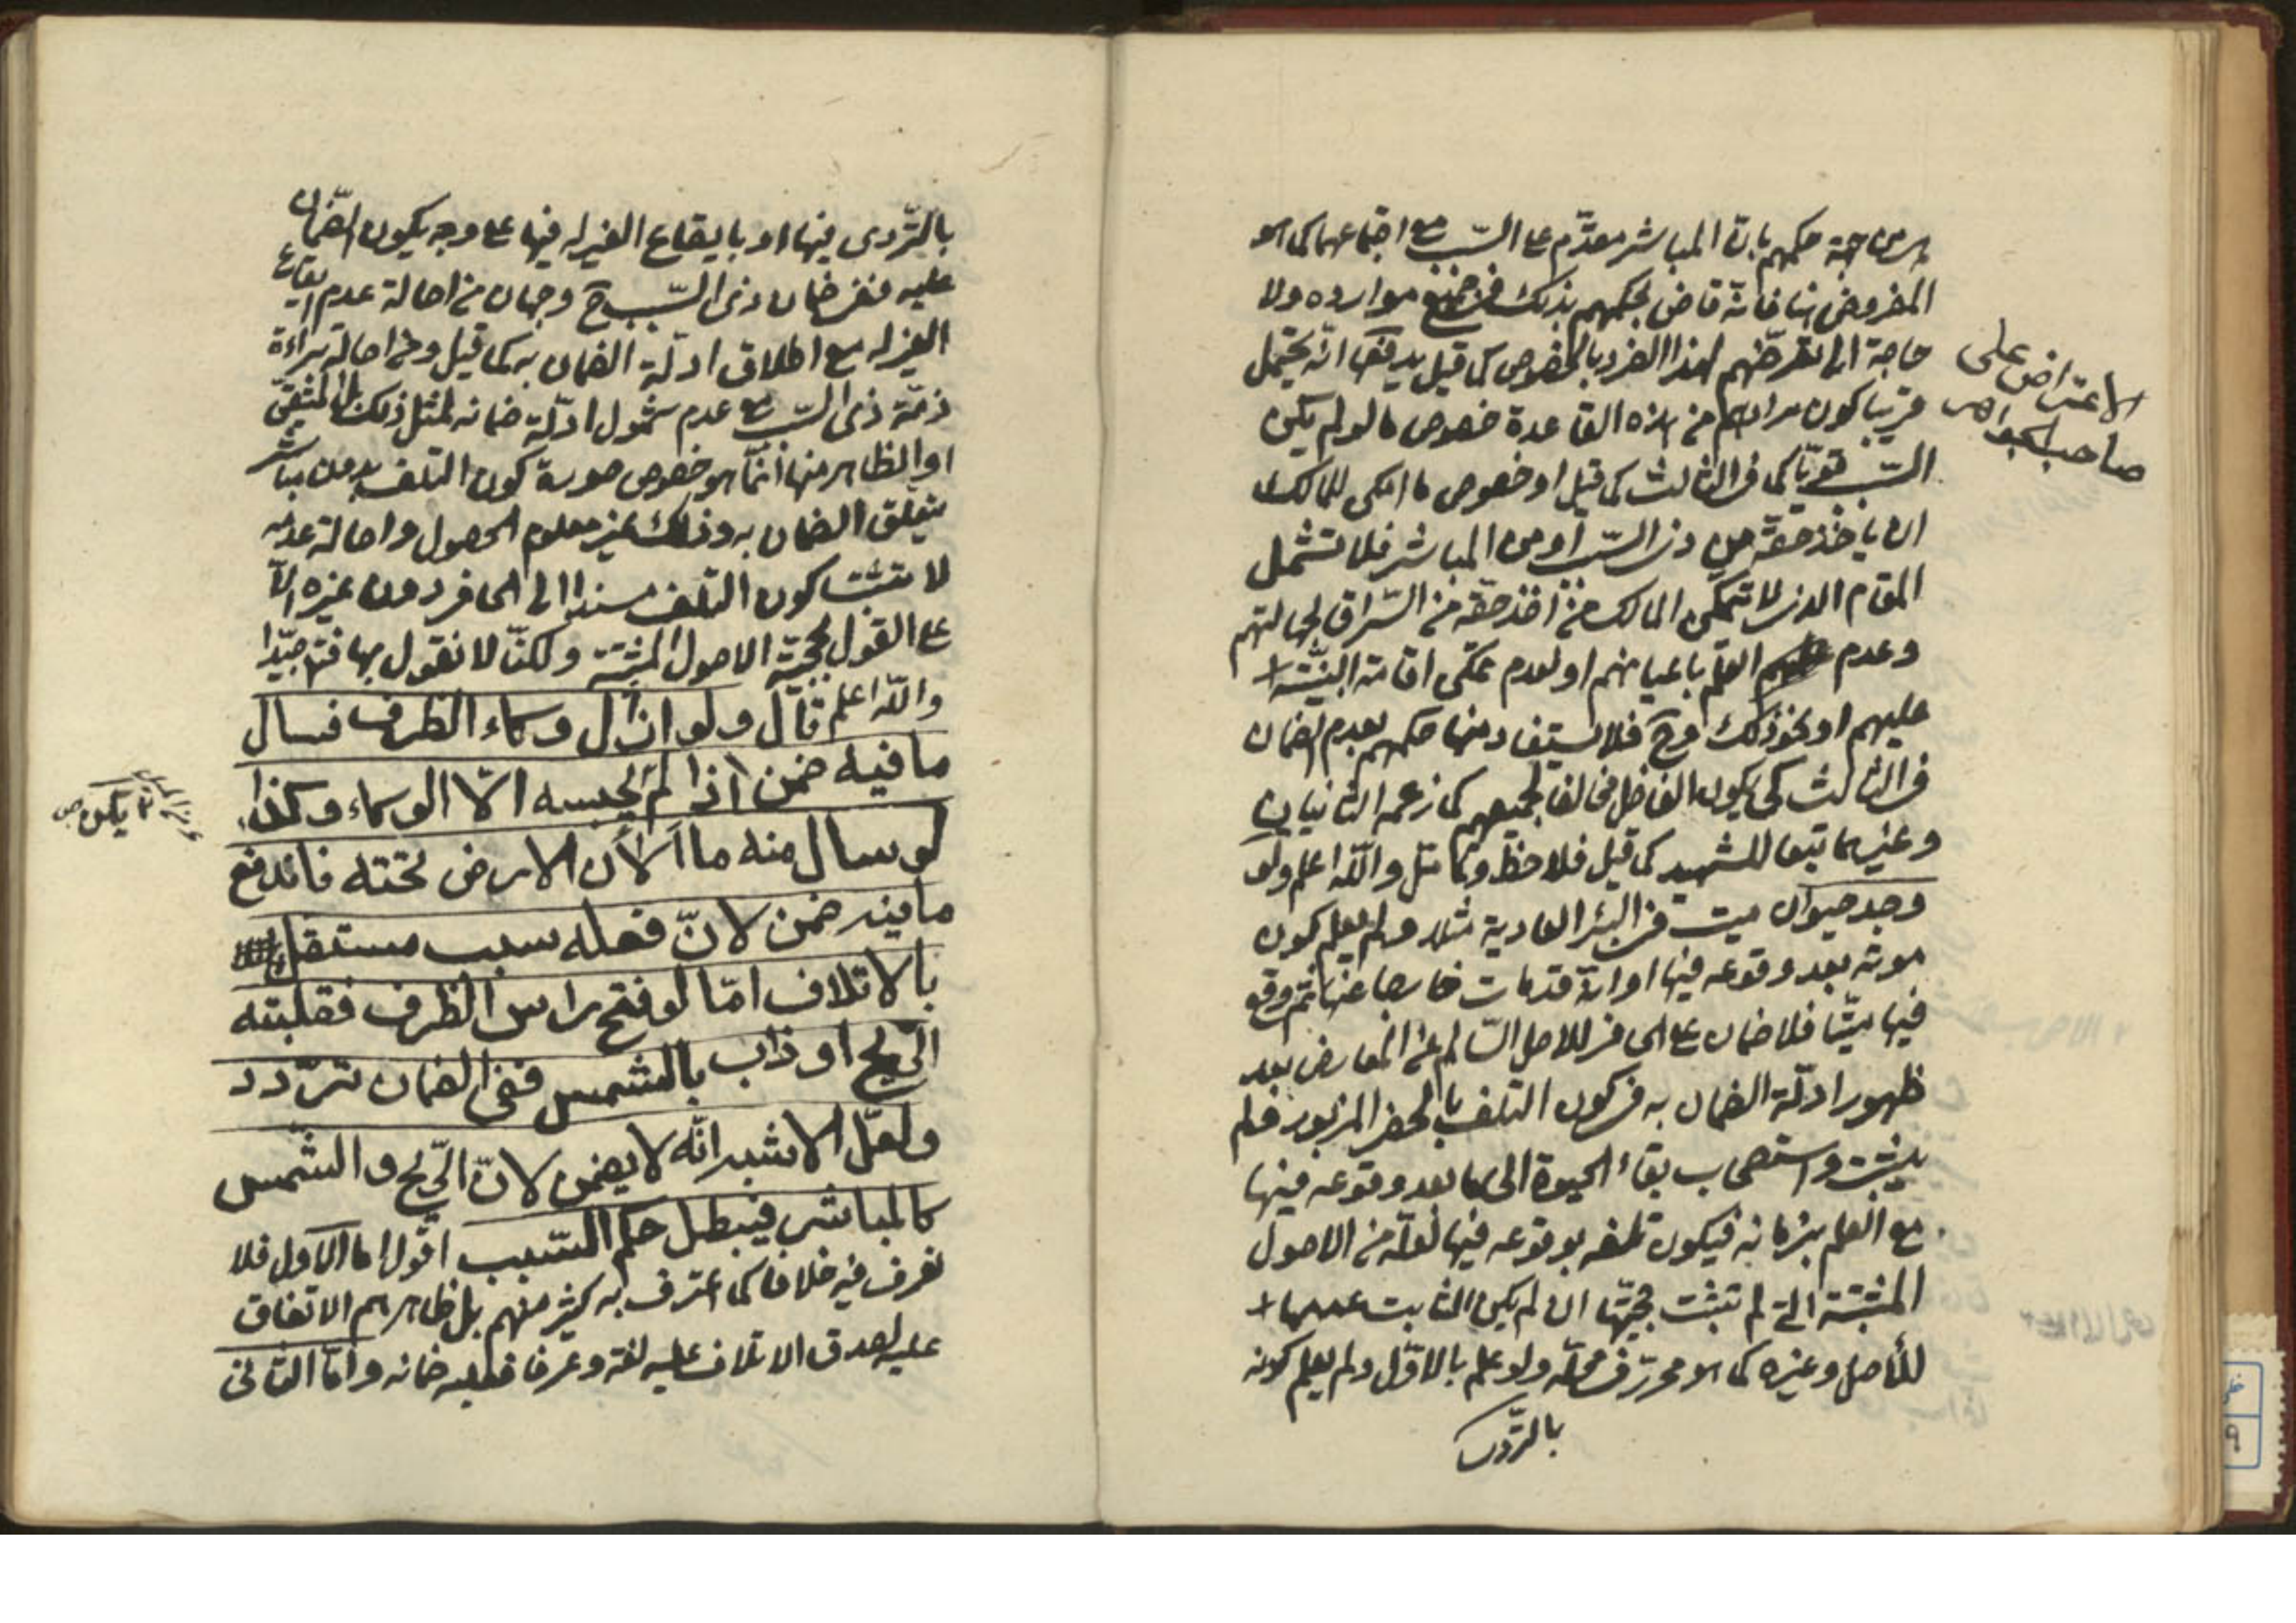 من جهة حكمهم بانّ المباشر مقدّم على السّبب مع اجتماعهما كما هو
المفروض هنا فانّه قاض بحكمهم بذلك فى جميع موارده ولا
حاجة الى تعرّضهم لهذا الفرد بالخصوص كما قيل يدفعها انّه يحتمل
قريبا كون مرادهم من هذه القاعدة خصوص ما لو لم يكن
السّبب قويّا كما فى الثالث كما قيل او خصوص ما امكن للمالك
ان ياخذ حقّه من ذى السّبب او من المباشر فلا تشمل
المقام الذى لا تمكّن المالك من اخذ حقّه من السّراق لجهالتهم
وعدم العلم باعيانهم او لعدم تمكن اقامة البيّنة
عليهم او نحو ذلك وح فلا يستفاد منها حكمهم بعدم الضمان
فى الثالث كى يكون الفاضل مخالفا لجميعهم كما زعمه الثانيان
وغيرهما تبعا للشهيد كما قيل فلاحظ وتامّل واللّه اعلم ولو
وجد حيوان ميت فى البئر العادية مثلا ولم يعلم كون
موته بعد وقوعه فيها او انّه قد مات خارجا عنها ثم وقع
فيها ميّتا فلا ضمان على الحافر للاصل السّالم عن المعارض بعد
ظهور ادلّة الضمان به فى كون التلف بالحفر المزبور فلم
يثبت واستصحاب بقاء الحيوة الى ما بعد وقوعه فيها
مع العلم بزمانه فيكون تلفه بوقوعه فيها لعلّه من الاصول
المثبتة التى لم تثبت حجيّتها ان لم يكن الثابت عدمها
للأصل وغيره كما هو محرّر فى محلّه ولو علم بالاوّل ولم يعلم كونه
بالتّردى
الاعتراض على
صاحب الجواهر
بالتّردى فيها او بايقاع الغير له فيها على وجه يكون الضّمان
عليه ففى ضمان ذى السّبب ح وجهان من اصالة عدم ايقاع
الغير له مع اطلاق ادلّة الضمان به كما قيل ومن اصالة براءة
ذمّة ذى السّبب مع عدم شمول ادلّة ضمانه لمثل ذلك
او الظاهر منها انّما هو خصوص صورة كون التلف بدون مباشر
يتعلّق الضمان به وذلك غير معلوم الحصول واصالة عدمه
لا تثبت كون التلف مسندا الى الحافر دون غيره الّا
على القول بحجيّة الاصول المثبتة ولكنّا لا نقول بها فتدبر جيّدا
واللّه اعلم قال ولو ازال وكاء الظرف فسال
ما فيه ضمن اذا لم يحبسه الّا الوكاء وكذا
لو سال منه ما ألان الارض تحته فاندفع
ما فيه ضمن لانّ فعله سبب مستقل
بالاتلاف امّا لو فتح راس الظرف فقلبته
الرّيح او ذاب بالشمس ففى الضمان تردّد
ولعلّ الاشبه انّه لا يضمن لانّ الرّيح والشّمس
كالمباشر فيبطل حكم السّبب اقول اما الاول فلا
نعرف فيه خلافا كما اعترف به كثير منهم بل ظاهرهم الاتفاق
عليه لصدق الاتلاف عليه لغة وعرفا فعليه ضمانه وامّا الثانى